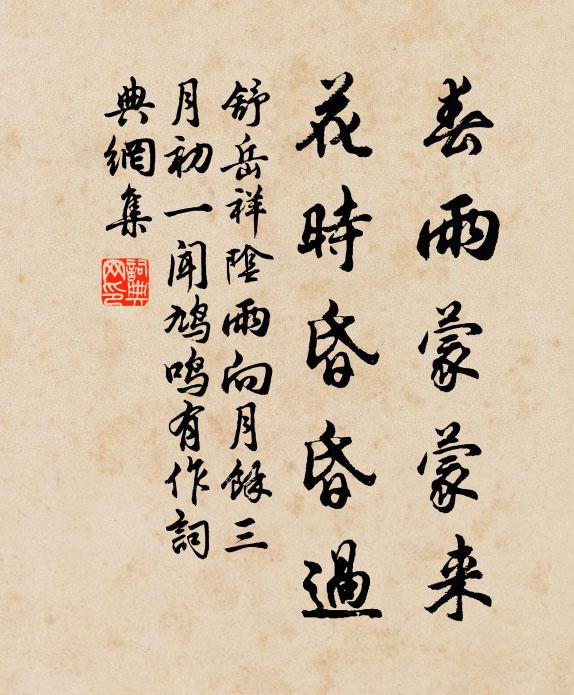 春雨蒙蒙来
花時昏昏過
舒岳祥陰雨向月餘三
月初一聞鳩鳴有作詞
典網集
詞典
网印